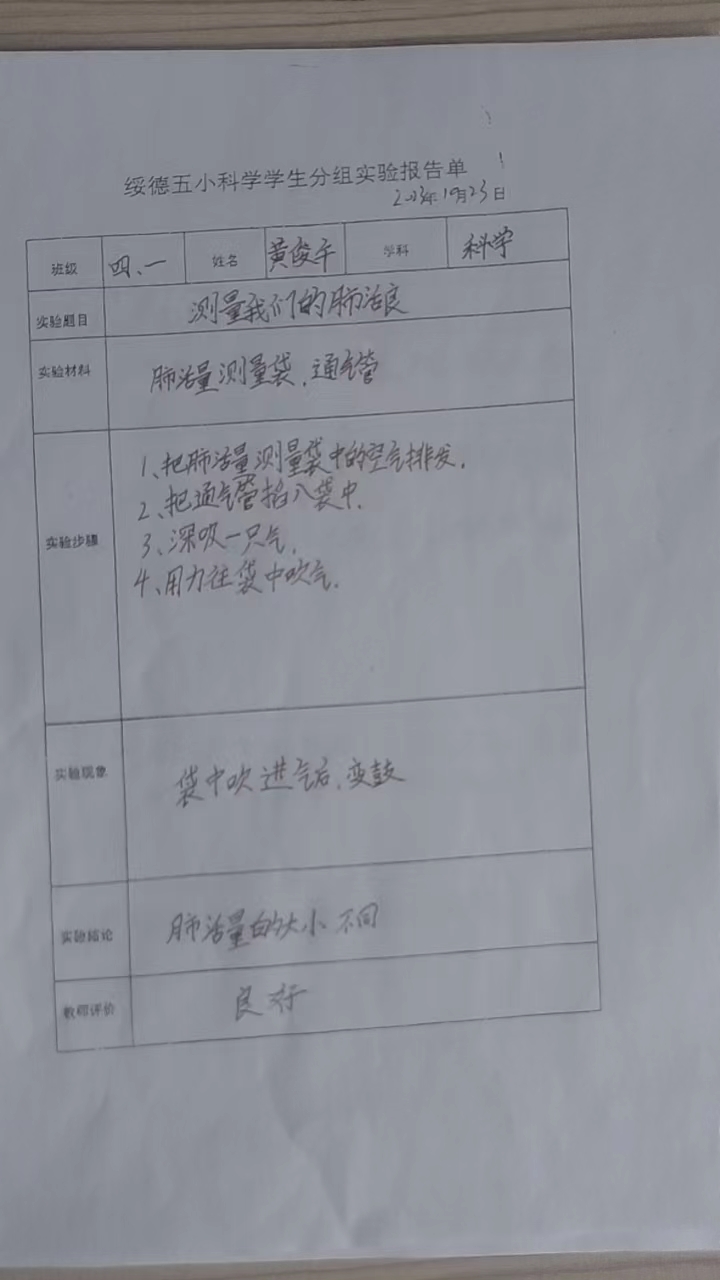 绥德五小科学学生分组实验报告单
2023年10月23日
班级 四、一 姓名 黄俊午 学科 科学
实验题目 测量我们的肺活良
实验材料 肺活量测量袋，通气管
实验步骤
1、把肺活量测量袋中的空气排发，
2、把通气管掐入袋中，
3、深吸一只气，
4、用力往袋中吹气．
实验现象 袋中吹进气后，变鼓
实验结论 肺活量的大小不同
教师评价 良好